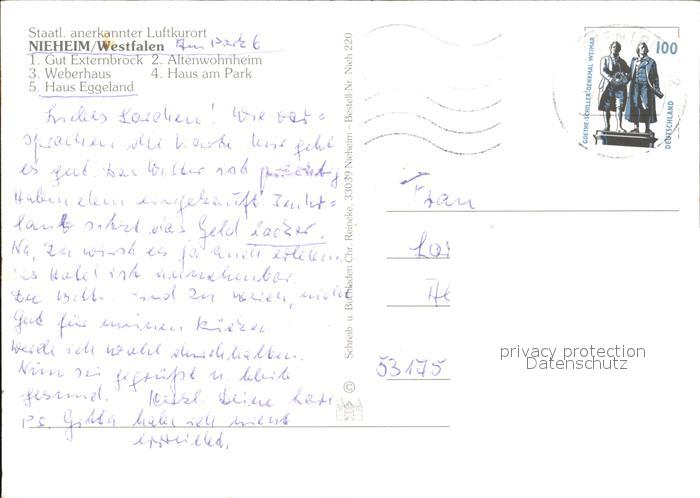 Staatl. anerkannter Luftkurort
NIEHEIM/Westfalen Zum Park 6
1. Gut Externbrock 2. Altenwohnheim
3. Weberhaus 4. Haus am Park
5. Haus Eggeland
Liebes Lorchen! Wie ver=
sprochen die Karte. Mir geht
es gut. Das Wetter ist prächtig
Haben eingekauft. Im Ur=
laub sitzt das Geld locker.
Na, Du wirst es ja auch erleben.
Das Hotel ist annehmbar.
Die Betten sind zu weich, nicht
gut für meinen Rücken.
Werde ich wohl durchhalten.
Nun sei gegrüßt u. bleib
gesund. Herzl. Deine
PS. Gitta habe ich nicht
erreicht.
Schreib- u. Buchladen Chr. Reineke, 33039 Nieheim – Bestell-Nr. Nieh 220
©
GOETHE-SCHILLER-DENKMAL WEIMAR
100
DEUTSCHLAND
Frau
53175
privacy protection
Datenschutz